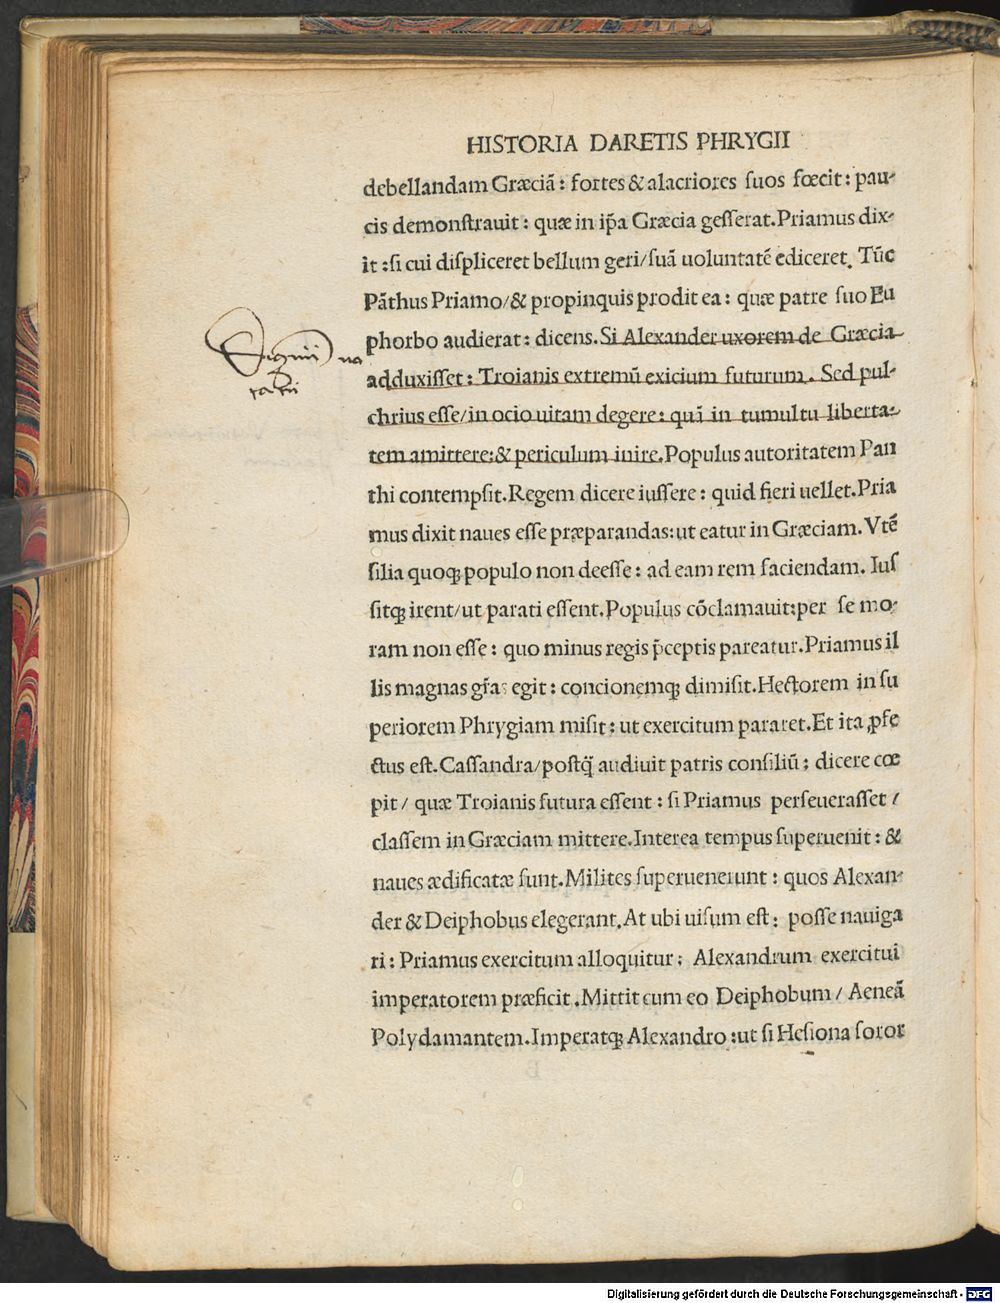 HISTORIA DARETIS PHRYGII
debellandam Græciã : fortes & alacriores suos fœcit : pau-
cis demonstrauit : quæ in ip̃a Græcia gesserat. Priamus dix-
it : si cui displiceret bellum geri / suã uoluntatẽ ediceret. Tũc
Pãthus Priamo / & propinquis prodit ea : quæ patre suo Eu
phorbo audierat : dicens. Si Alexander uxorem de Græcia
adduxisset : Troianis extremũ exicium futurum. Sed pul-
chrius esse / in ocio uitam degere : quã in tumultu liberta-
tem amittere : & periculum inire. Populus autoritatem Pan
thi contempsit. Regem dicere iussere : quid fieri uellet. Pria
mus dixit naues esse præparandas : ut eatur in Græciam. Vtẽ
silia quoqꝫ populo non deesse : ad eam rem faciendam. Ius
sitqꝫ irent / ut parati essent. Populus cõclamauit : per se mo-
ram non esse : quo minus regis p̃ceptis pareatur. Priamus il
lis magnas gr̃as egit : concionemqꝫ dimisit. Hectorem in su
periorem Phrygiam misit : ut exercitum pararet. Et ita ꝓfe
ctus est. Cassandra / postq̃ audiuit patris consiliũ : dicere cœ
pit / quæ Troianis futura essent : si Priamus perseuerasset /
classem in Græciam mittere. Interea tempus superuenit : &
naues ædificatæ sunt. Milites superuenerunt : quos Alexan-
der & Deiphobus elegerant. At ubi uisum est : posse nauiga
ri : Priamus exercitum alloquitur : Alexandrum exercitui
imperatorem præficit. Mittit cum eo Deiphobum / Aeneã
Polydamantem. Imperatqꝫ Alexandro : ut si Hesiona soror
Digitalisierung gefördert durch die Deutsche Forschungsgemeinschaft - DFG